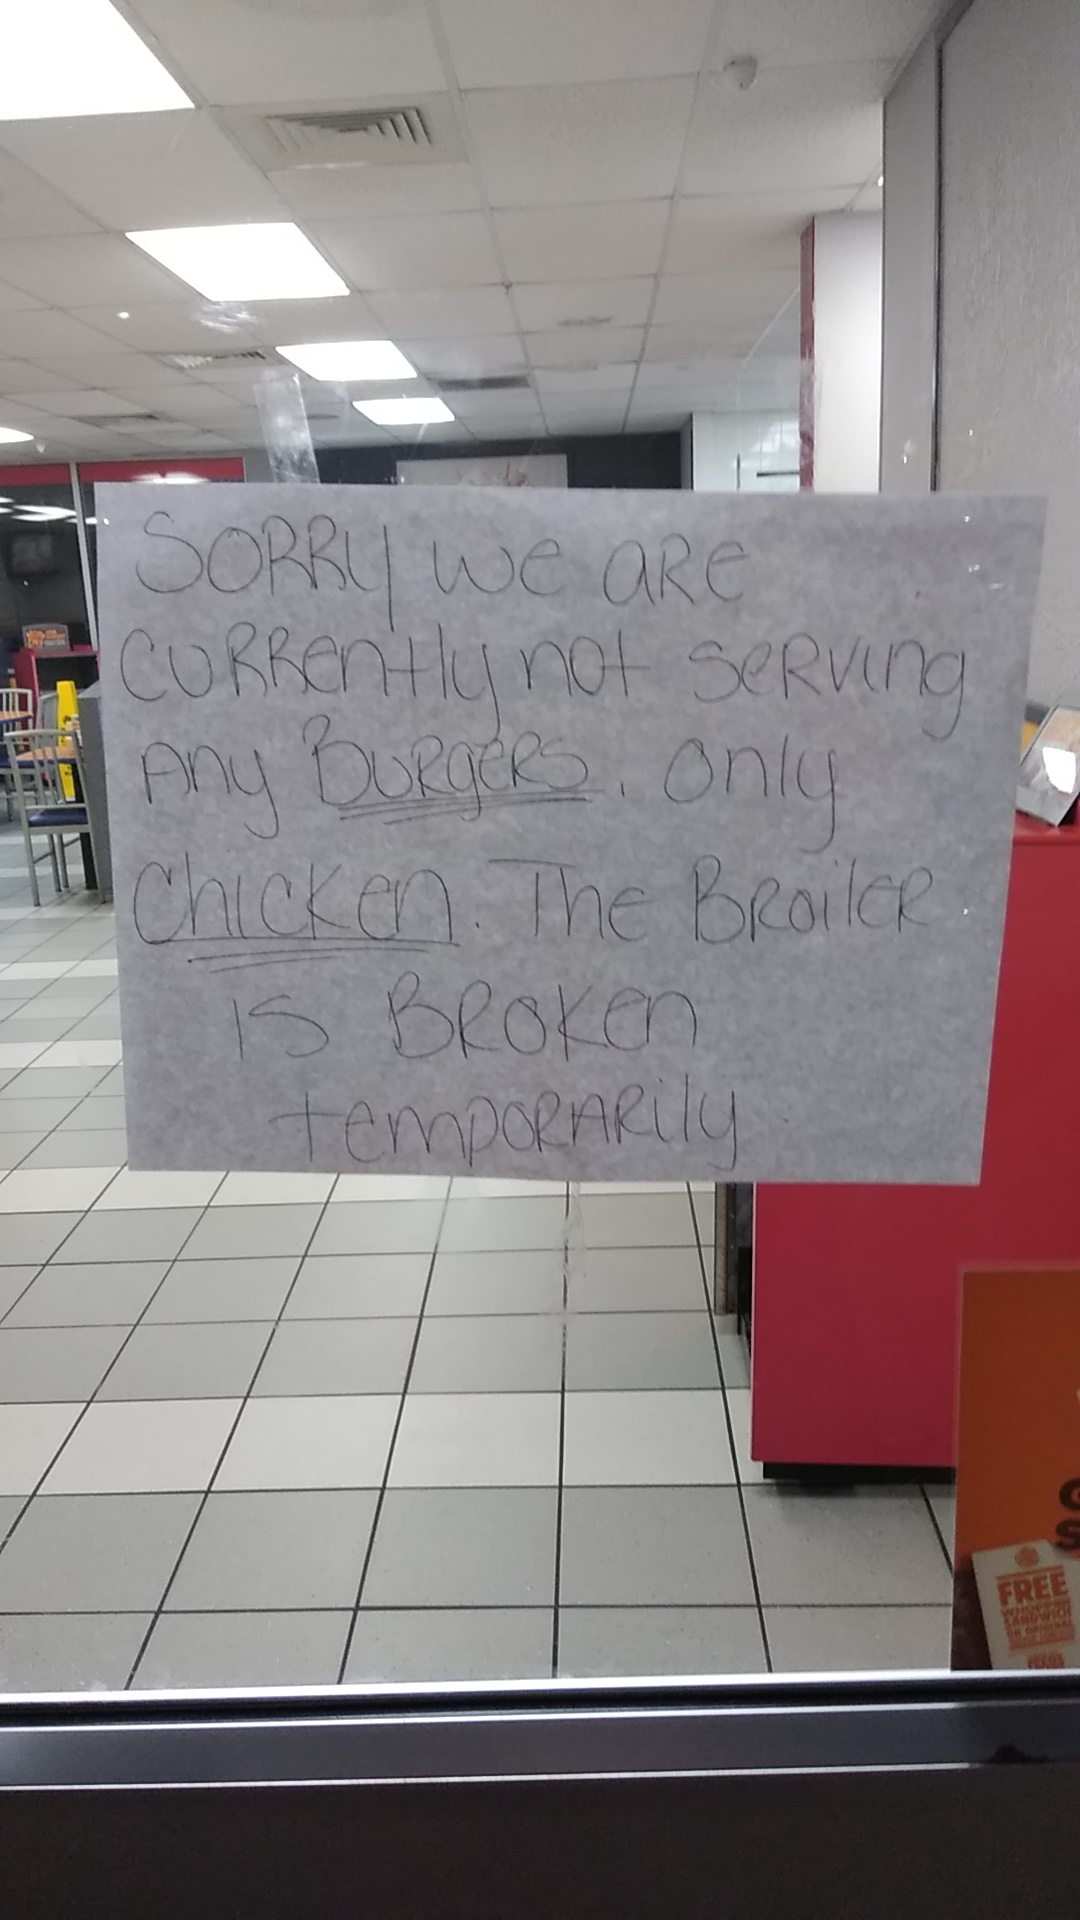 SORRY we are
currently not serving
Any Burgers. only
Chicken. The Broiler
is Broken
temporarily
FREE
SANDWICH